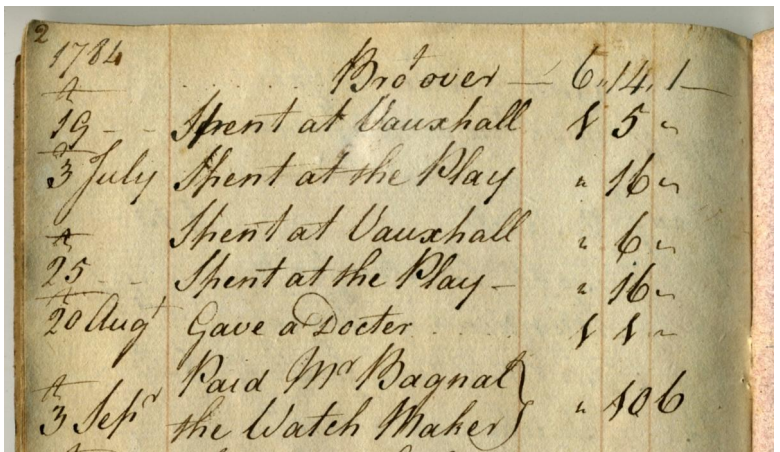 2
1784
Bro.t over — 6 " 14 " 1 —
th
19 - - Spent at Vauxhall 1 5 "
d
3 July Spent at the Play " 16 "
Spent at Vauxhall " 6 "
th
25 - - Spent at the Play - " 16 "
th
20 Augt Gave a Docter 1 1 "
Paid Mr Bagnal
3 Sepr the Watch Maker } " 10 6